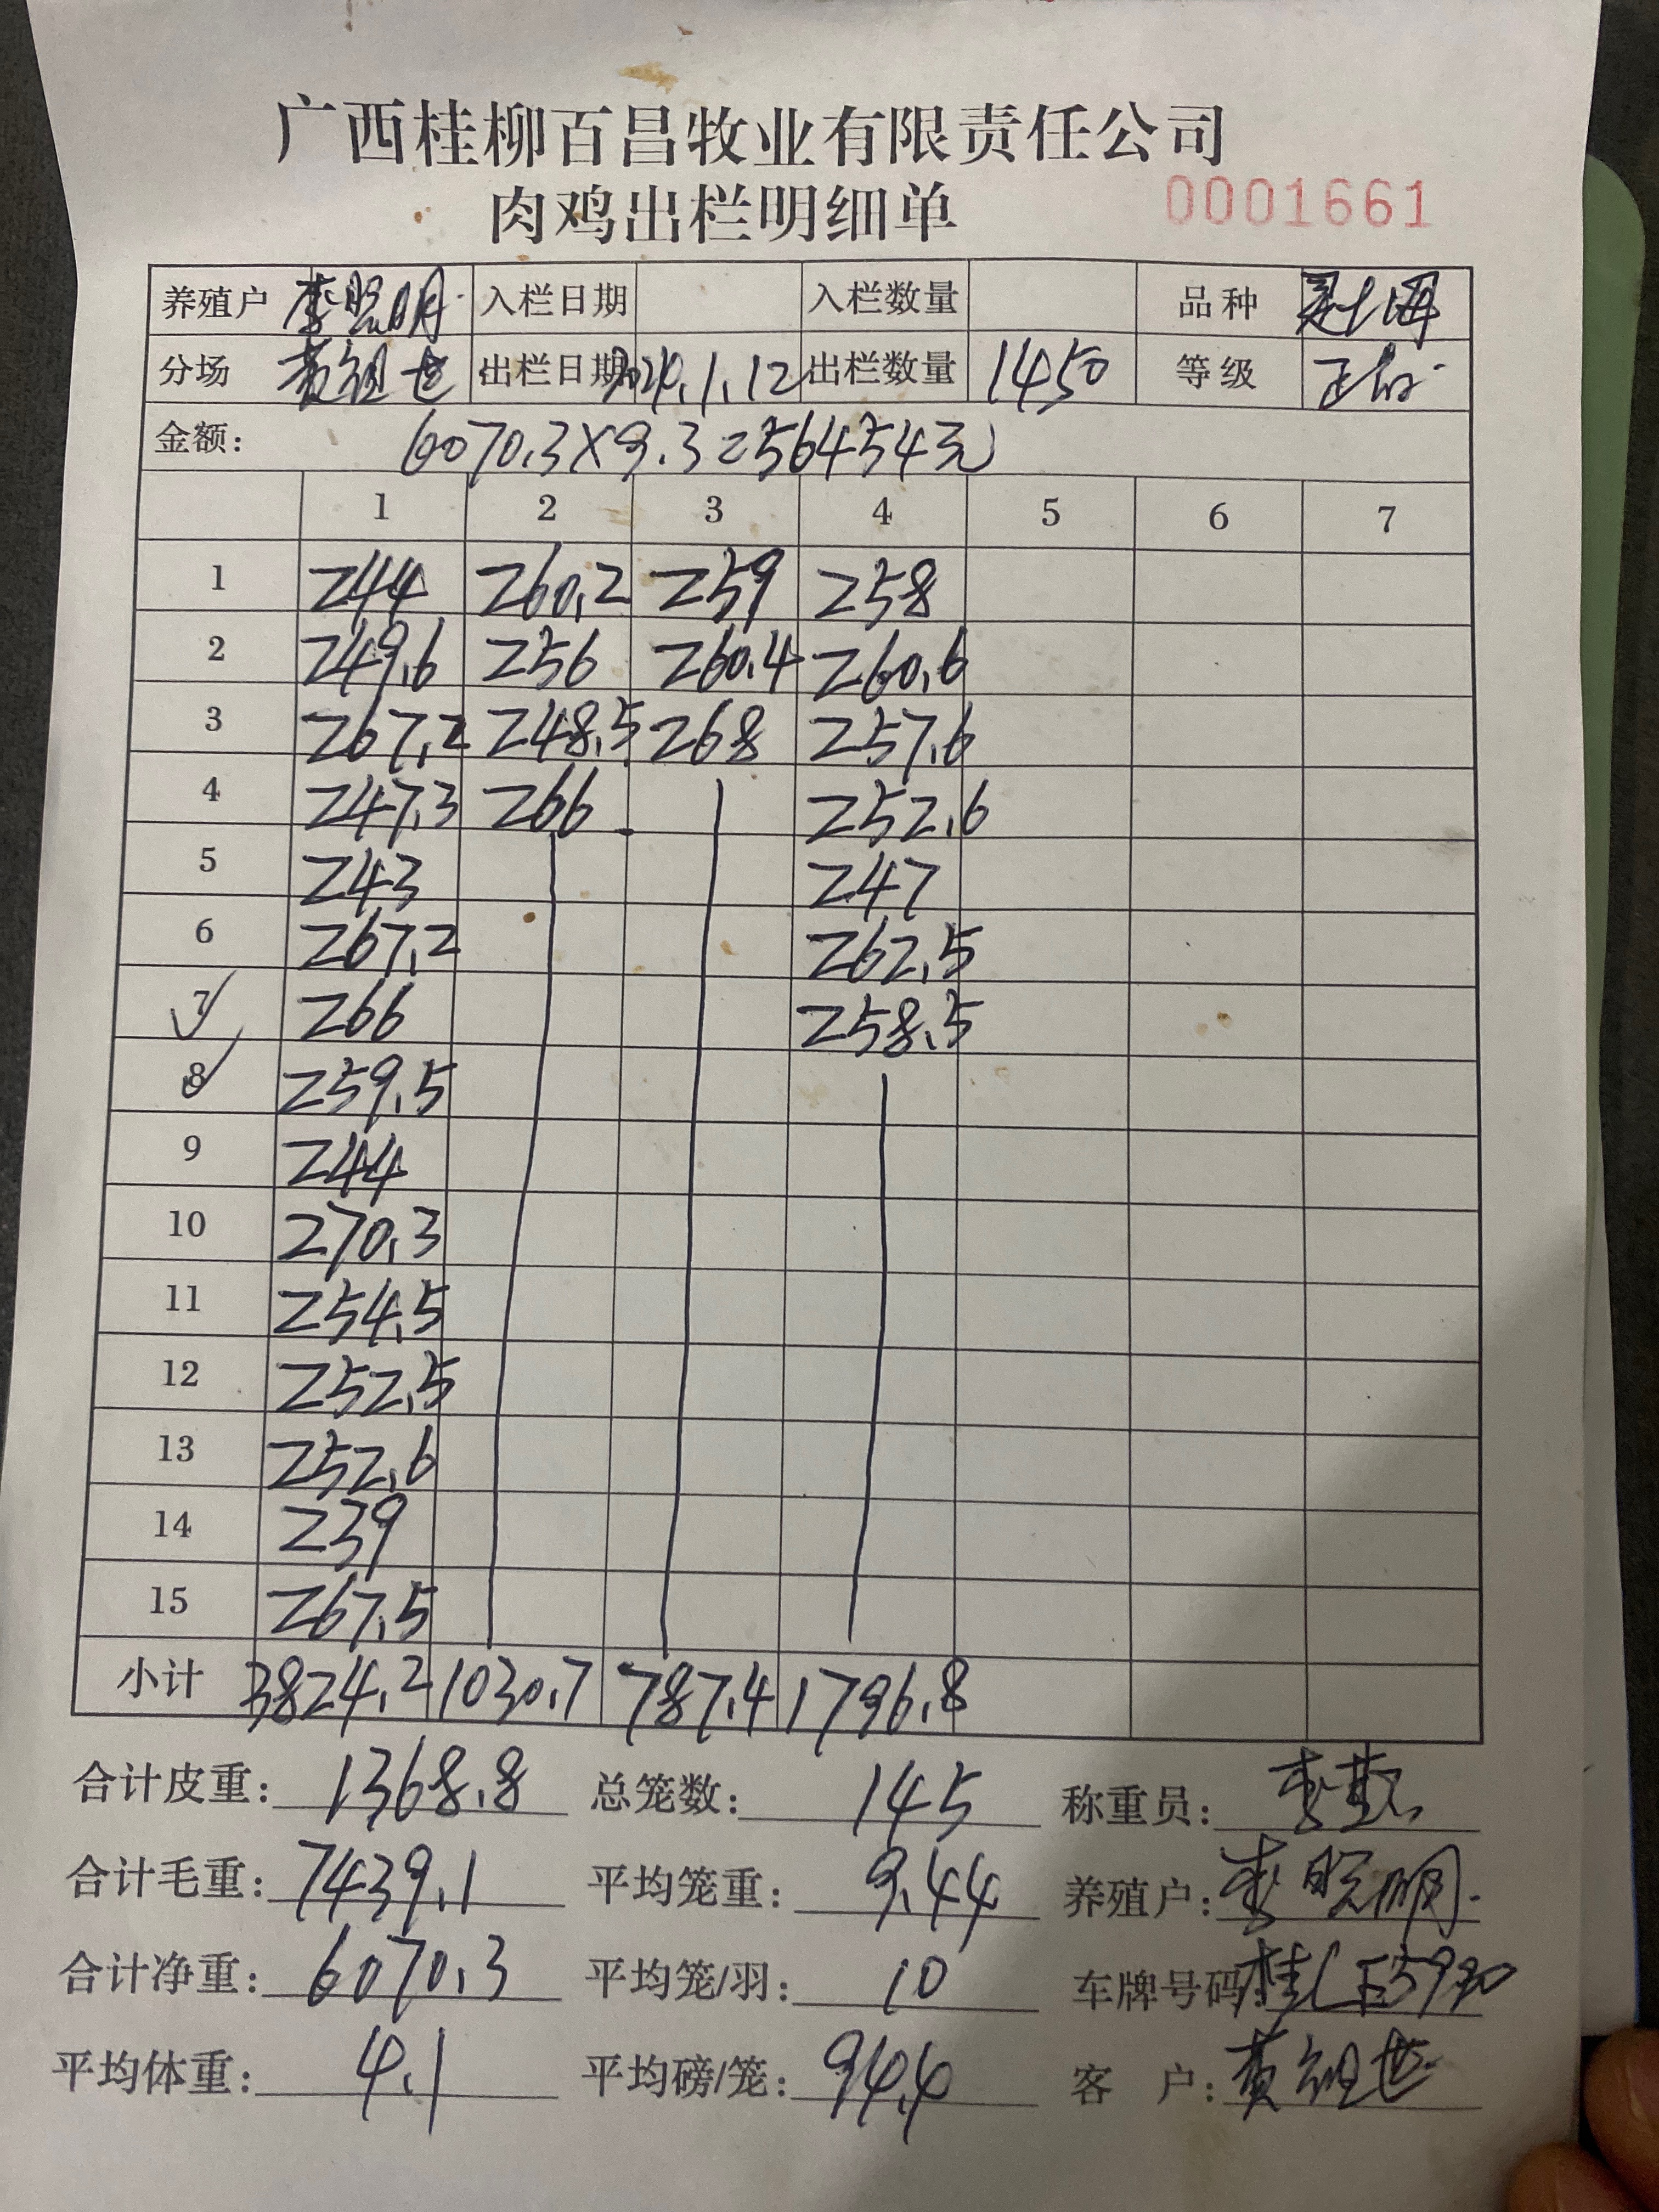 广西桂柳百昌牧业有限责任公司
肉鸡出栏明细单 0001661
养殖户 李照明 入栏日期 入栏数量 品种
分场 黄祖世 出栏日期 2024.1.12 出栏数量 1450 等级 正品
金额: 6070.3×9.3=56454元
1 2 3 4 5 6 7
1 244 260.2 259 258
2 249.6 256 260.4 260.6
3 267.2 248.5 268 257.6
4 247.3 266 252.6
5 243 247
6 267.2 262.5
7 266 258.5
8 259.5
9 244
10 270.3
11 254.5
12 252.5
13 252.6
14 239
15 267.5
小计 3824.2 1030.7 787.4 1796.8
合计皮重: 1368.8 总笼数: 145 称重员:
合计毛重: 7439.1 平均笼重: 9.44 养殖户: 李照明
合计净重: 6070.3 平均笼/羽: 10 车牌号码:
平均体重: 4.1 平均磅/笼: 94.4 客 户: 黄祖世